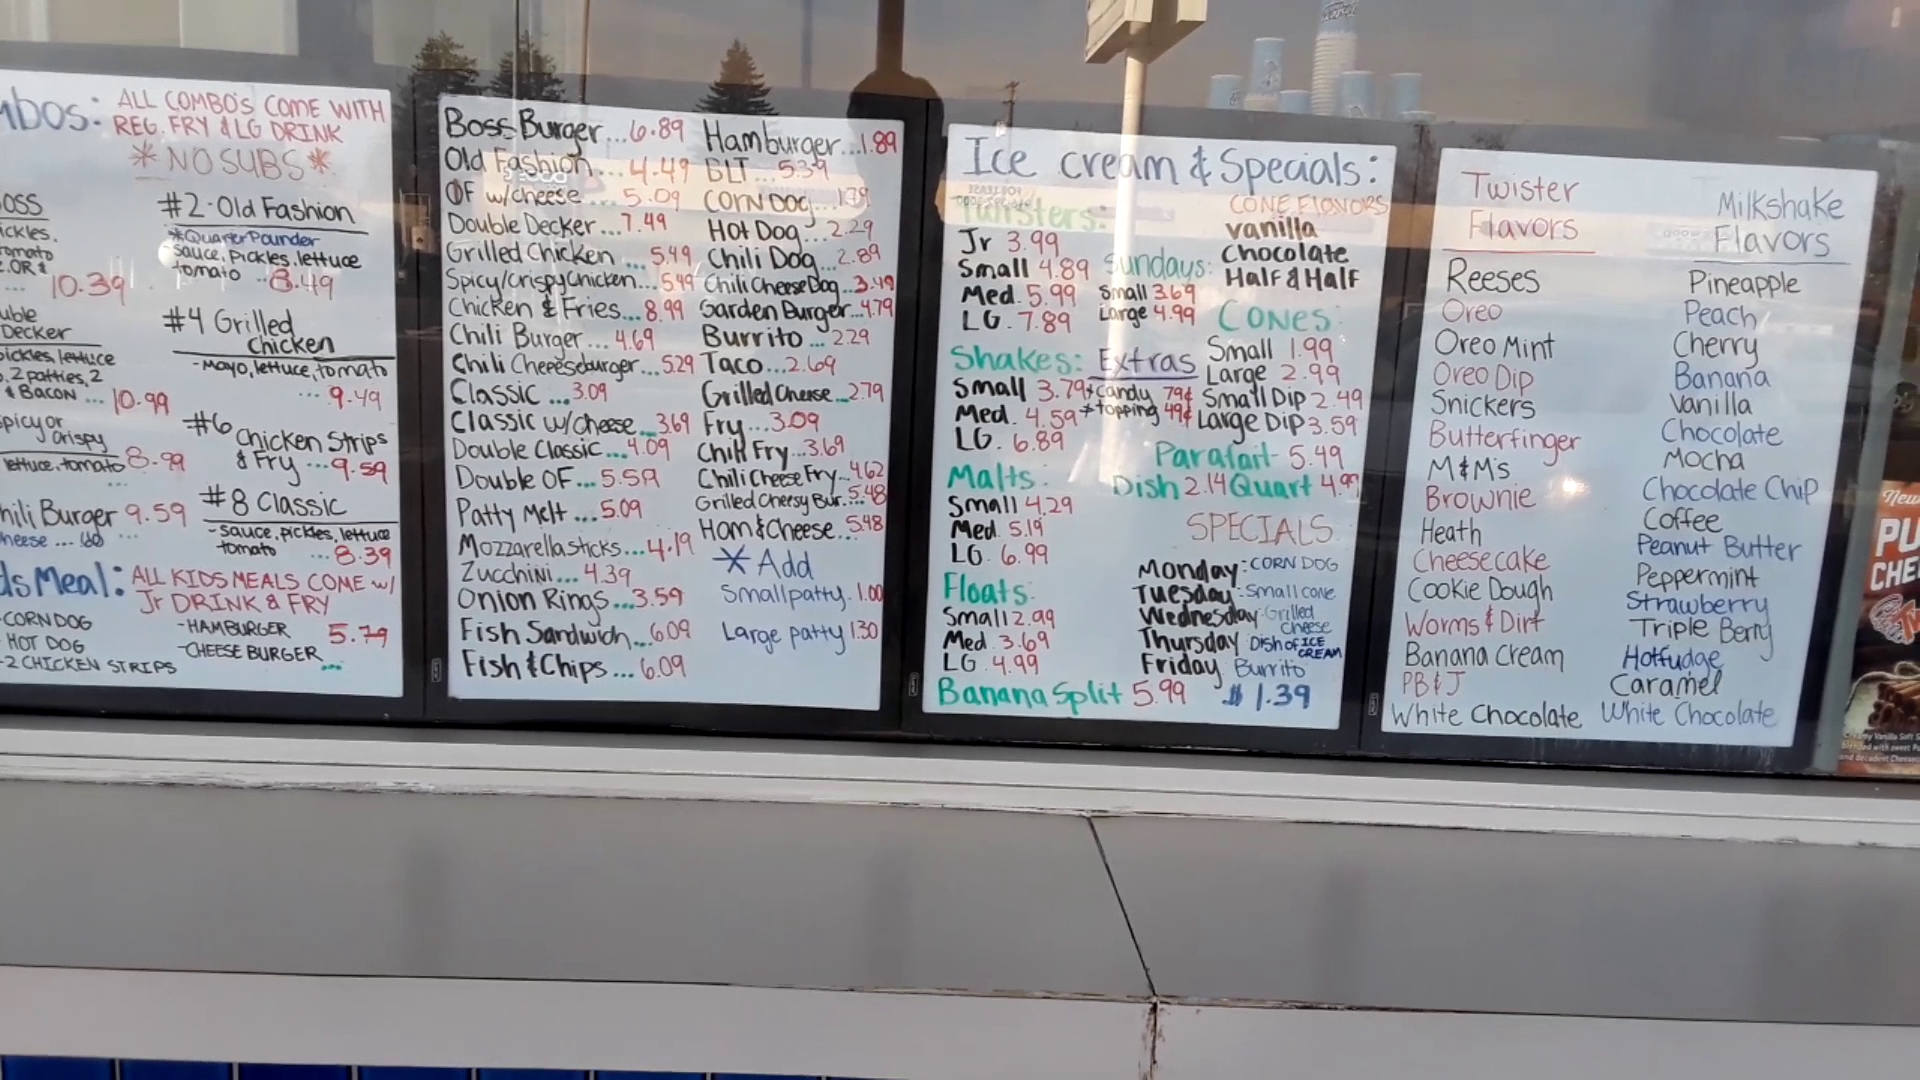 mbos: ALL COMBO'S COME WITH
REG. FRY & LG DRINK
*NO SUBS*
OSS
ickles,
omato
OR &
... 10.39
#2-Old Fashion
*Quarter Pounder
-sauce, pickles, lettuce
tomato ..8.49
uble
Decker
pickles, lettuce
, 2 patties, 2
& Bacon ... 10.99
#4 Grilled
Chicken
-Mayo, lettuce, tomato
... 9.49
picy or
crispy
lettuce, tomato 8.99
...
#6 Chicken Strips
& Fry ...9.59
hili Burger 9.59
cheese .... .60 ...
#8 Classic
-sauce, pickles, lettuce
tomato ...8.39
ds Meal: ALL KIDS MEALS COME w/
Jr DRINK & FRY
-CORN DOG
-HOT DOG
-2 CHICKEN STRIPS
-HAMBURGER 5.79
-CHEESE BURGER ...
Boss Burger...6.89
Old Fashion...4.49
OF w/cheese ... 5.09
Double Decker...7.49
Grilled Chicken ... 5.49
Spicy/Crispy Chicken...5.49
Chicken & Fries...8.99
Chili Burger...4.69
Chili Cheeseburger...5.29
Classic ...3.09
Classic w/cheese...3.69
Double Classic...4.09
Double OF...5.59
Patty Melt...5.09
Mozzarella sticks...4.19
Zucchini...4.39
Onion Rings...3.59
Fish Sandwich...6.09
Fish & Chips...6.09
Hamburger...1.89
BLT...5.39
CORN DOG...1.79
Hot Dog...2.29
Chili Dog...2.89
Chili Cheese Dog...3.49
Garden Burger...4.79
Burrito...2.29
Taco...2.69
Grilled Cheese...2.79
Fry...3.09
Chili Fry...3.69
Chili Cheese Fry...4.62
Grilled Cheesy Bur..5.48
Ham & Cheese..5.48
*Add
Small patty. 1.00
Large patty 1.30
Ice cream & Specials:
Twisters:
Jr 3.99
Small 4.89
Med. 5.99
LG. 7.89
Shakes:
Small 3.79
Med. 4.59
LG. 6.89
Malts:
Small 4.29
Med. 5.19
LG. 6.99
Floats:
Small 2.99
Med. 3.69
LG. 4.99
Banana Split 5.99
Sundays:
Small 3.69
Large 4.99
Extras
*candy 79¢
*topping 49¢
CONE FLAVORS
Vanilla
Chocolate
Half & Half
CONES:
Small 1.99
Large 2.99
Small Dip 2.49
Large Dip 3.59
Parafait 5.49
Dish 2.14 Quart 4.99
SPECIALS
Monday: CORN DOG
Tuesday: Small cone
Wednesday: Grilled
Cheese
Thursday Dish of ICE
CREAM
Friday Burrito
$1.39
Twister
Flavors
Reeses
Oreo
Oreo Mint
Oreo Dip
Snickers
Butterfinger
M&M's
Brownie
Heath
Cheesecake
Cookie Dough
Worms & Dirt
Banana Cream
PB&J
White Chocolate
Milkshake
Flavors
Pineapple
Peach
Cherry
Banana
Vanilla
Chocolate
Mocha
Chocolate Chip
Coffee
Peanut Butter
Peppermint
Strawberry
Triple Berry
Hotfudge
Caramel
White Chocolate
New
PU
CHE